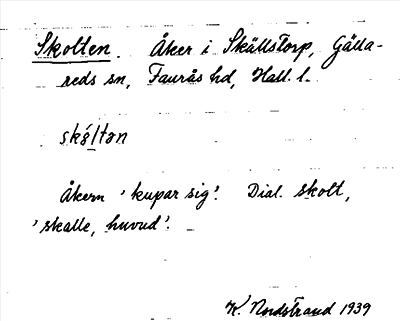 Skolten. Åker i Skällstorp, Gälla-
reds sn, Faurås hd, Hall. l.
skål̍tən
Åkern 'kupar sig'. Dial. skolt,
'skalle, huvud'.
K. Nordstrand 1939